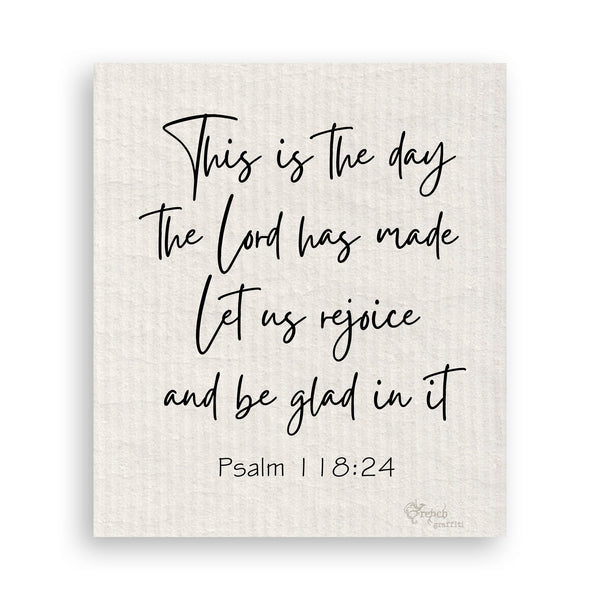 This is the day
the Lord has made
Let us rejoice
and be glad in it
Psalm 118:24
French
graffiti